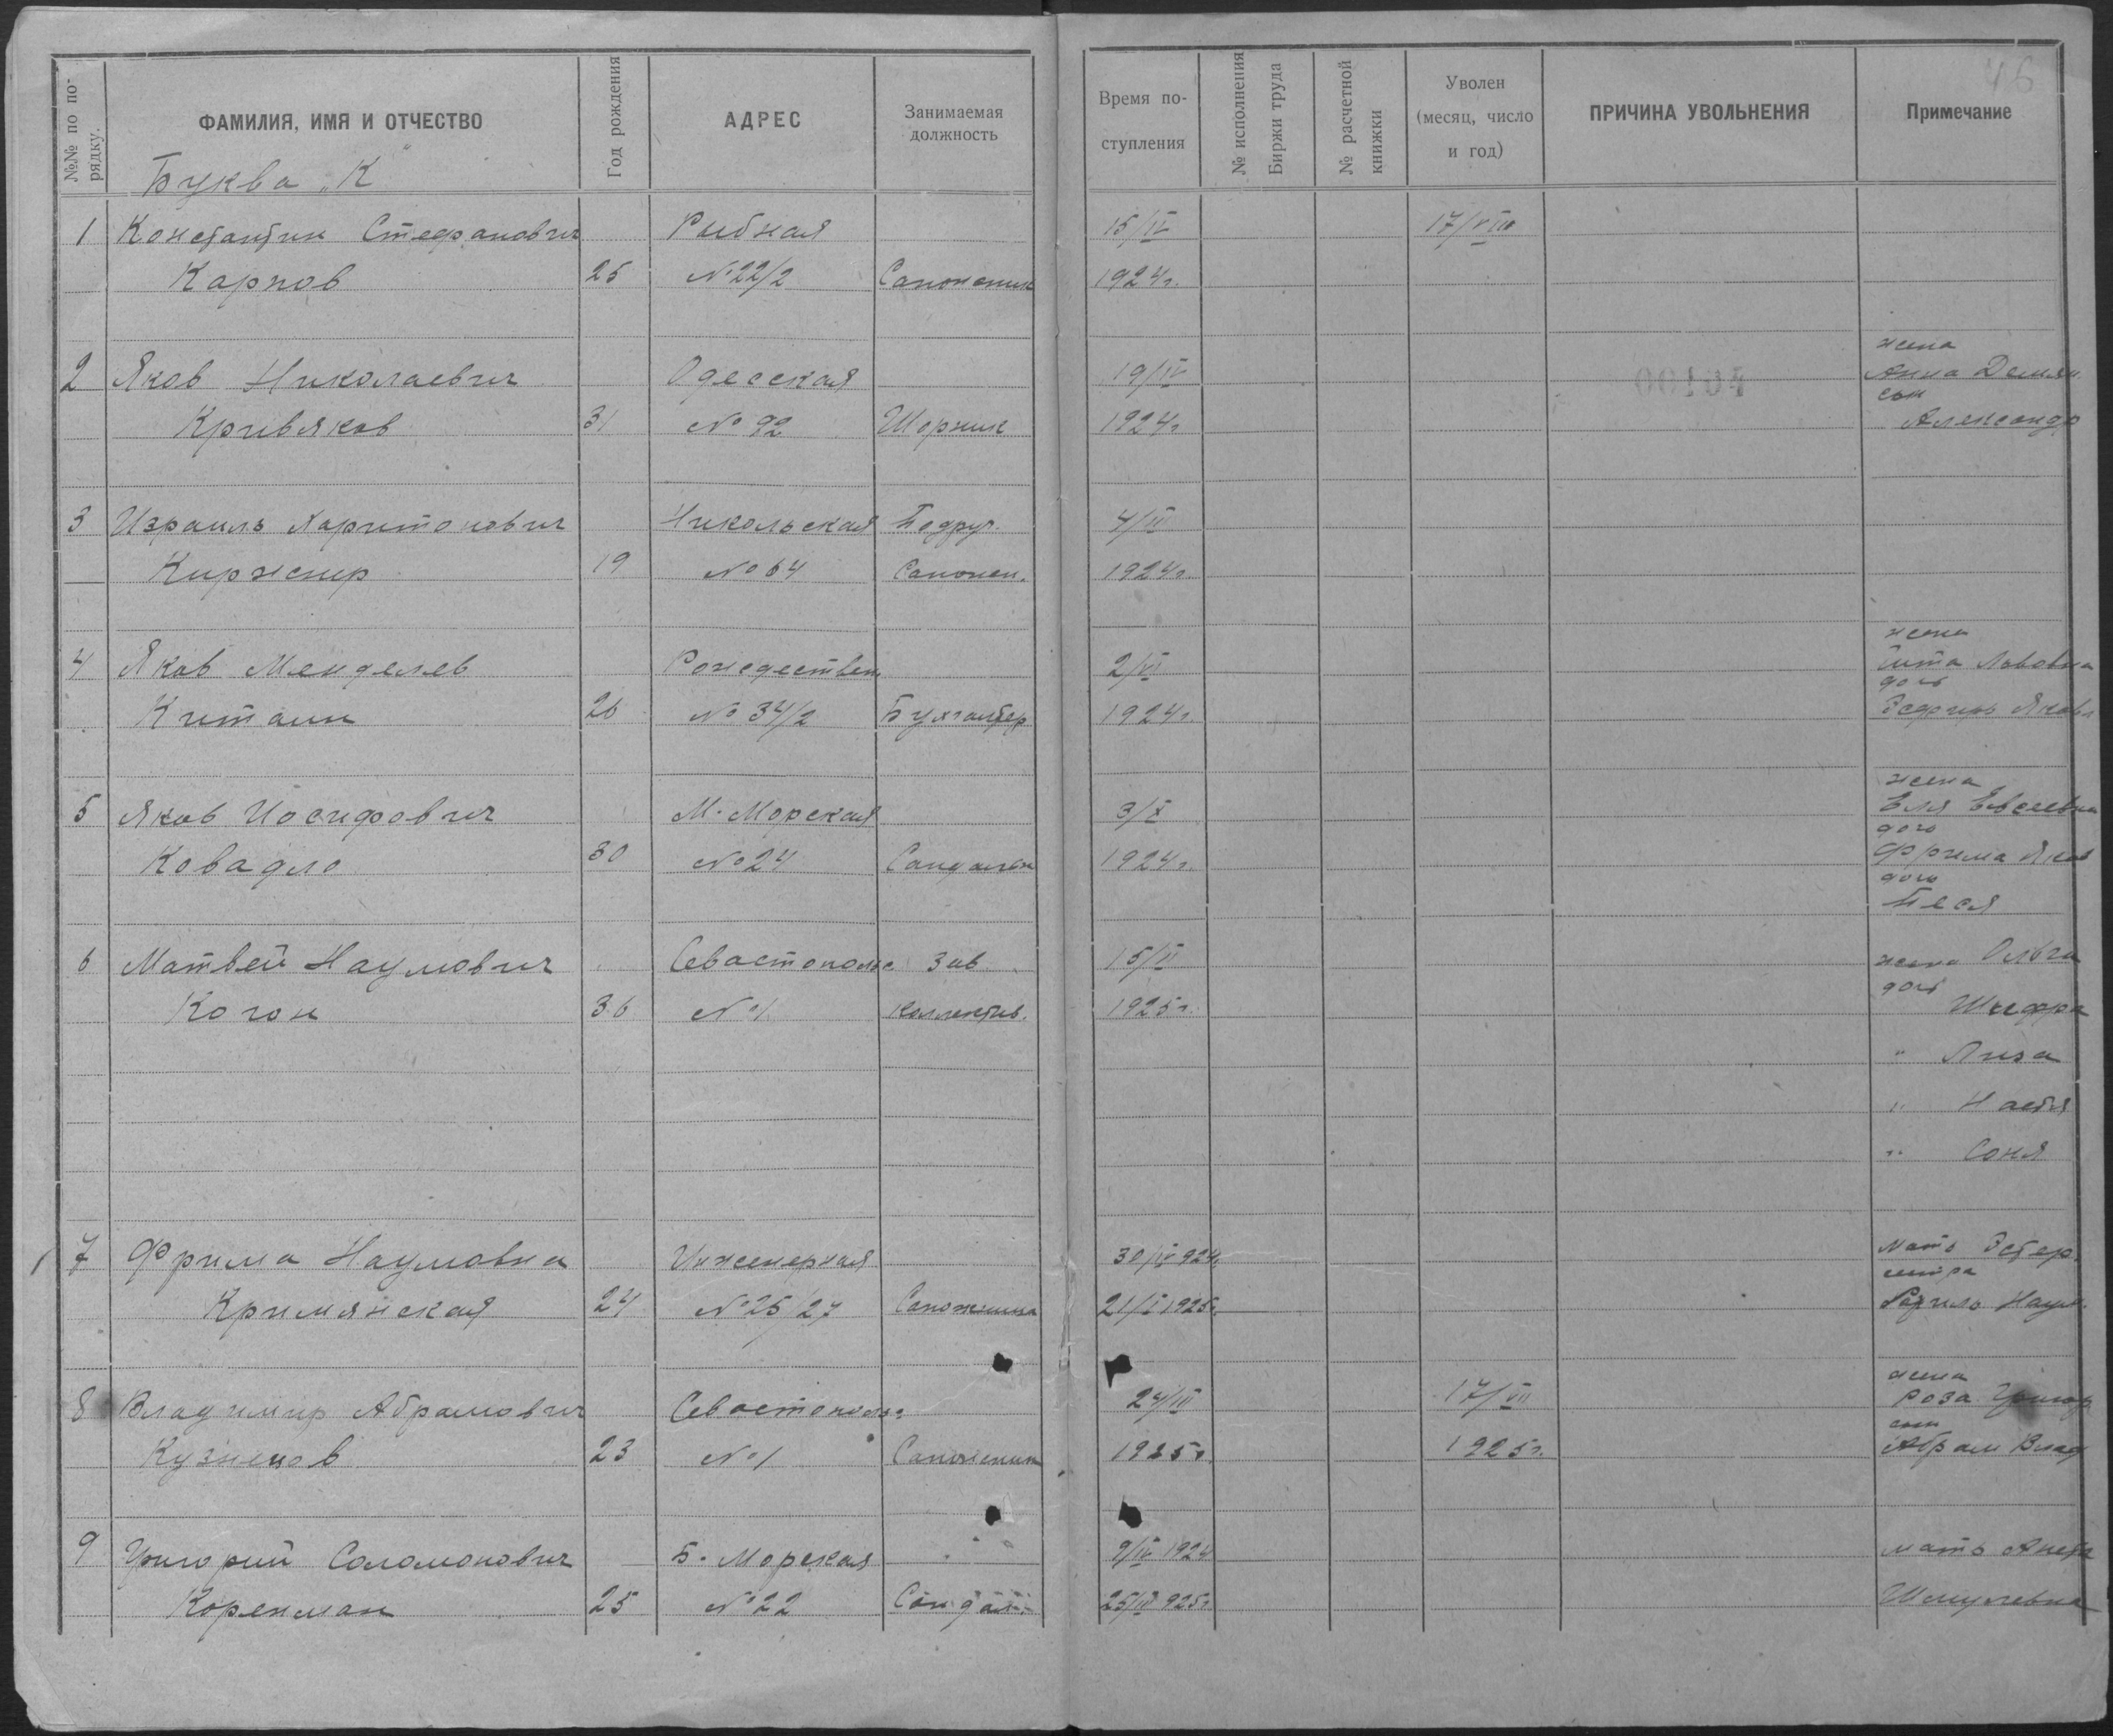 №№ по порядку.
ФАМИЛИЯ, ИМЯ И ОТЧЕСТВО
Год рождения
АДРЕС
Занимаемая должность
Время поступления
№ исполнения Биржи труда
№ расчетной книжки
Уволен (месяц, число и год)
ПРИЧИНА УВОЛЬНЕНИЯ
Примечание
46
Буква „К"
1 Константин Стефанович Рыбная 15/IV 17/VIII
Карпов 25 №22/2 Сапожник 1924г.
жена
2 Яков Николаевич Одесская 19/IV Анна Демян.
сын
Кривяков 31 № 92 Шорник 1924г Александр
3 Израиль Харитонович Никольская Подруч. 4/II
Киржнир 19 № 64 Сапожн. 1924г.
жена
4 Яков Менделев Рождествен. 2/VI Гита Львовна
дочь
Китаин 26 № 34/2 Бухгалтер 1924г. Эсфирь Яковл
жена
5 Яков Иосифович М. Морская 3/X Еля Евсеевна
дочь
Ковадло 30 № 24 Сандальн 1924г. Фрима Яков
дочь
Песя
6 Матвей Наумович Севастопольс Зав. 15/II жена Ольга
дочь
Когон 36 №1 Коллектив. 1925г. Шифра
" Лиза
" Настя
" Соня
7 Фрима Наумовна Инженерная 30/IV 924г. Мать Эстер.
сестра
Кримянская 24 №25/27 Сапожница 21/I 1925г. Рахиль Наум.
жена
8 Владимир Абрамович Севастопольс 24/III 17/VII Роза Григор
сын
Кузнецов 23 №1 Сапожник 1925г. 1925г. Абрам Влад
9 Григорий Соломонович Б. Морская 9/IV 1924 мать Анета
Коренман 25 №22 Сандал. 25/III 925г Шмулевна